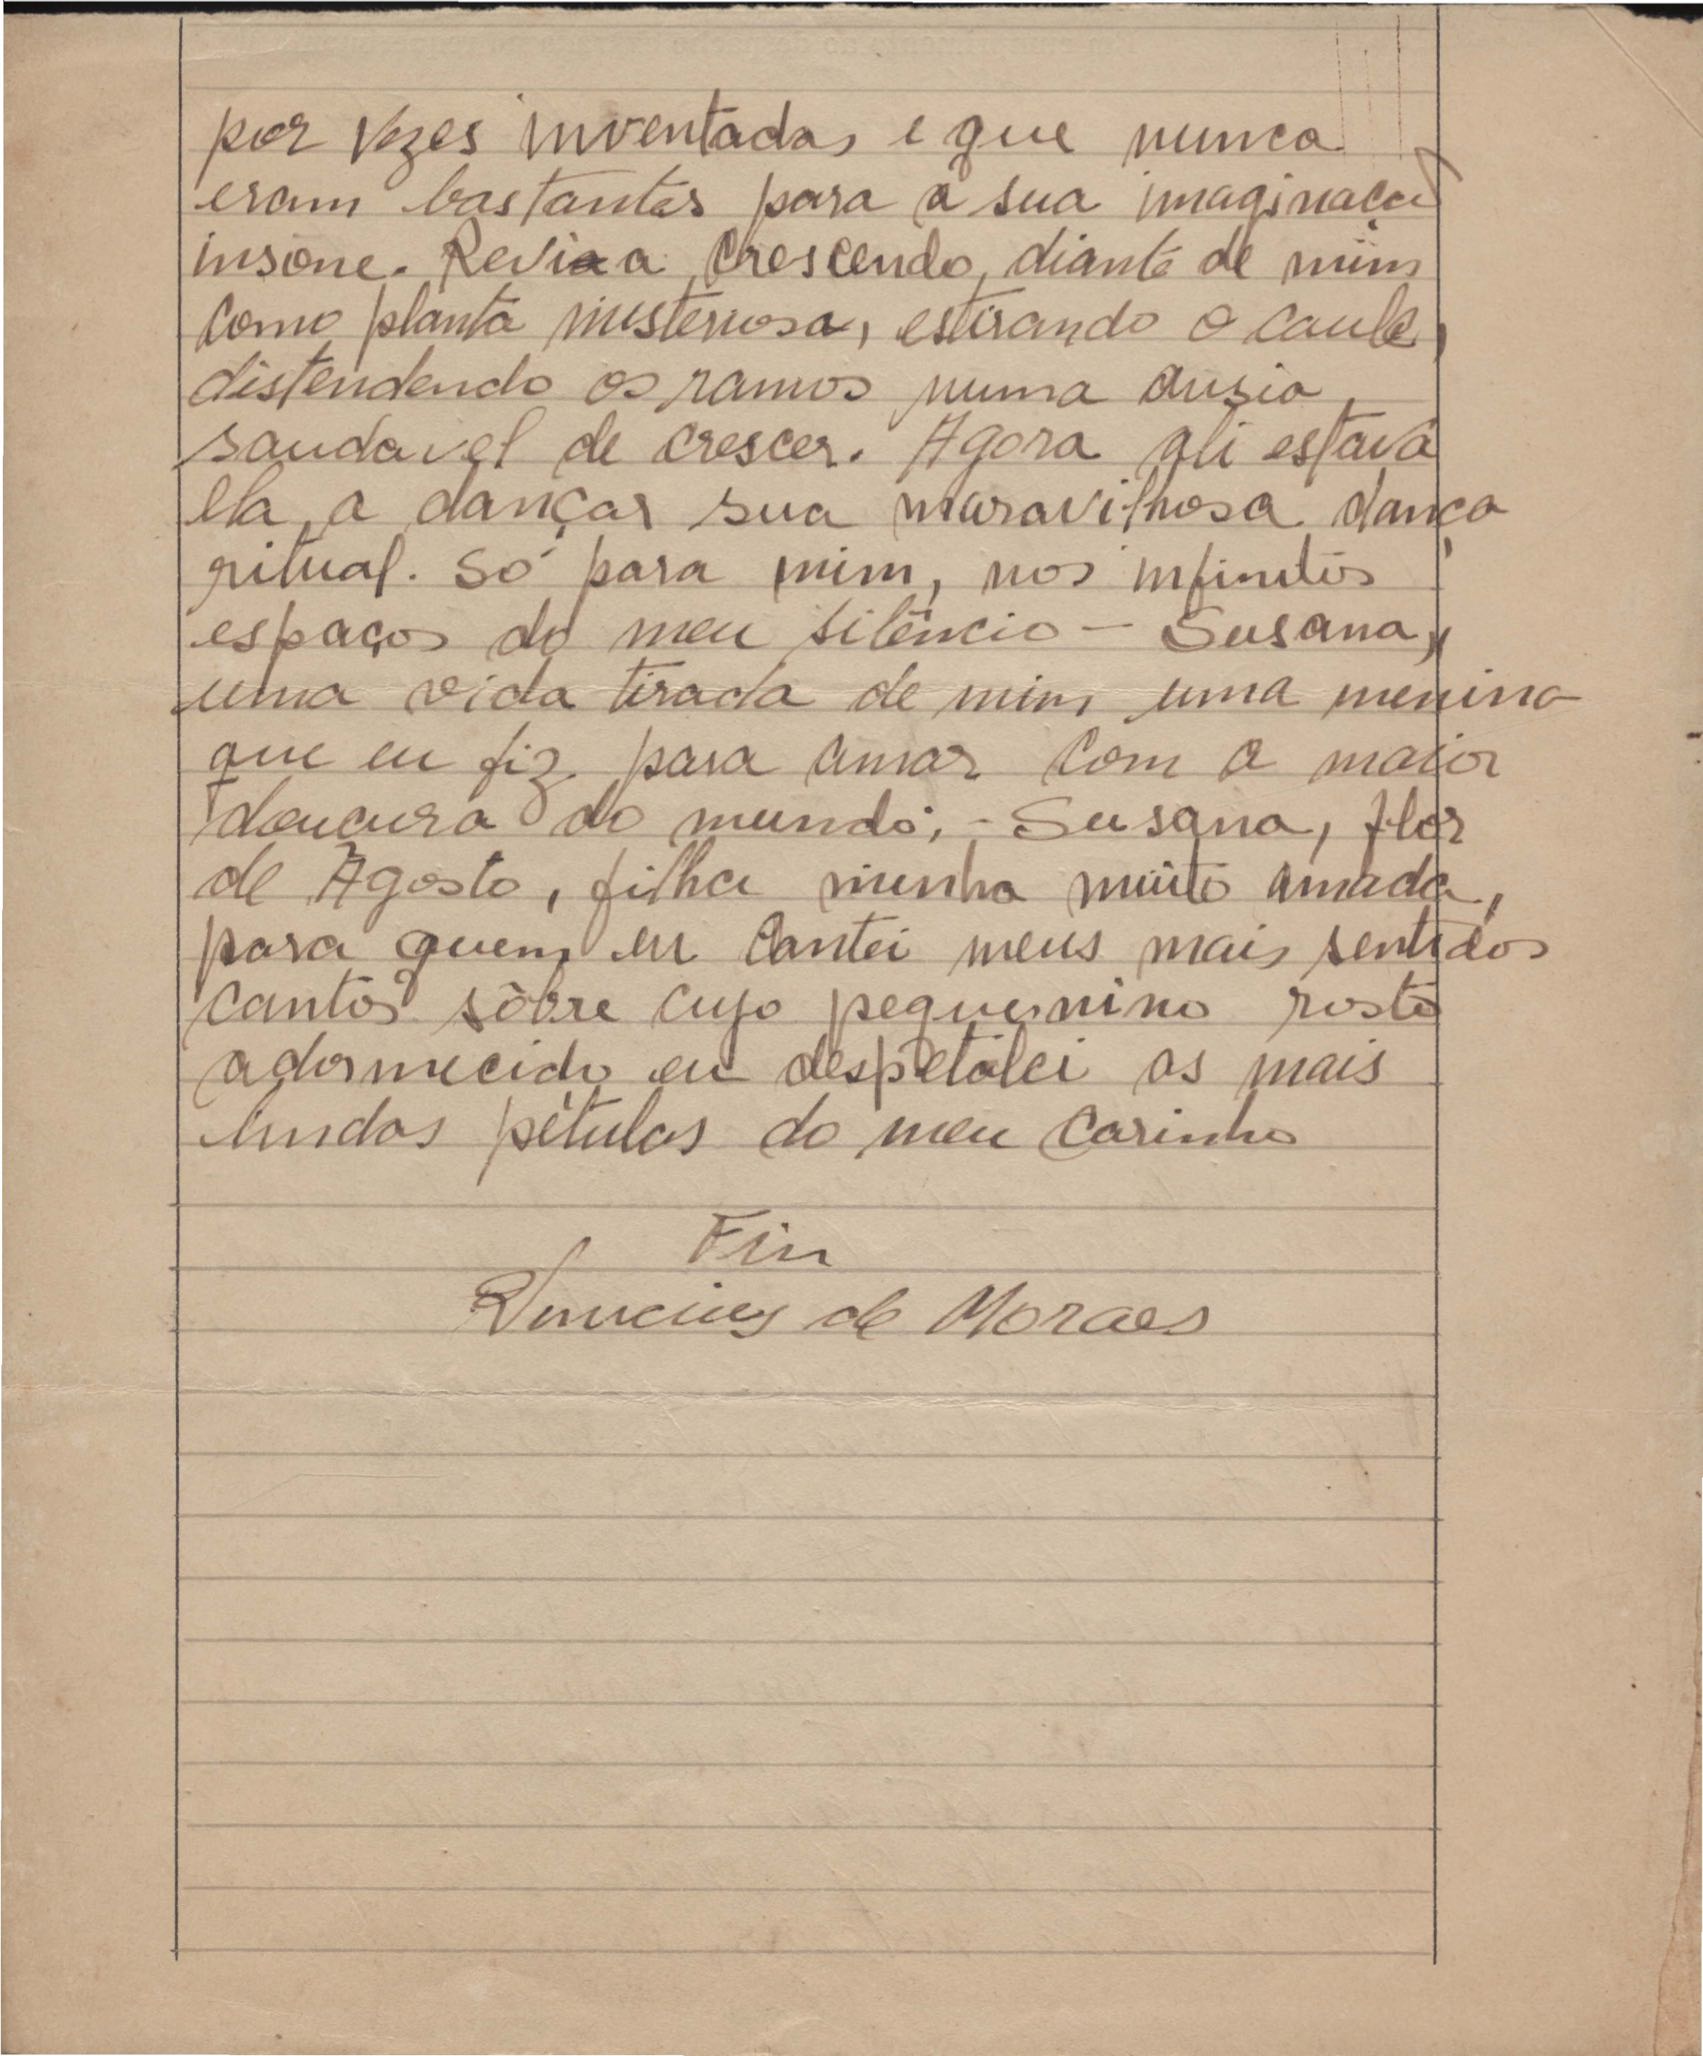 por vezes inventadas e que nunca
eram bastantes para a sua imaginação
insone. Revi-a crescendo, diante de mim
como planta misteriosa, estirando o caule,
distendendo os ramos numa ansia
saudavel de crescer. Agora ali estava
ela, a dançar sua maravilhosa dança
ritual. só para mim, nos infinitos
espaços do meu silêncio – Susana,
uma vida tirada de mim, uma menina
que eu fiz para amar com a maior
doucura do mundo, - Susana, flor
de Agosto, filha minha muito amada,
para quem eu cantei meus mais sentidos
cantos sôbre cujo pequenino rosto
adormecido eu despetalei as mais
lindas pétulas do meu carinho
Fin
Vinicius de Moraes